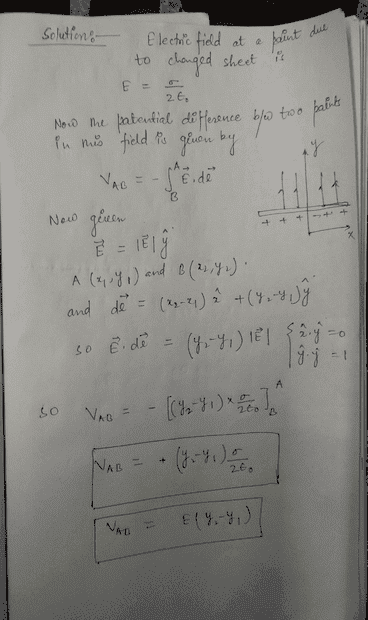 Solution:- Electric field at a point due
to charged sheet is
E = σ/2ε₀
Now the potential difference b/w two points
in this field is given by
V_AB = - ∫_B^A E⃗.dℓ⃗
y
+ + + - + +
x
Now given
E⃗ = |E⃗| ŷ
A (x₁,y₁) and B (x₂,y₂).
and dℓ⃗ = (x₂-x₁) x̂ + (y₂-y₁) ŷ
so E⃗.dℓ⃗ = (y₂-y₁) |E⃗| { x̂.ŷ = 0
ŷ.ŷ = 1
so V_AB = - [(y₂-y₁) × σ/2ε₀]_B^A
V_AB = + (y₂-y₁) σ/2ε₀
V_AB = E(y₂-y₁)